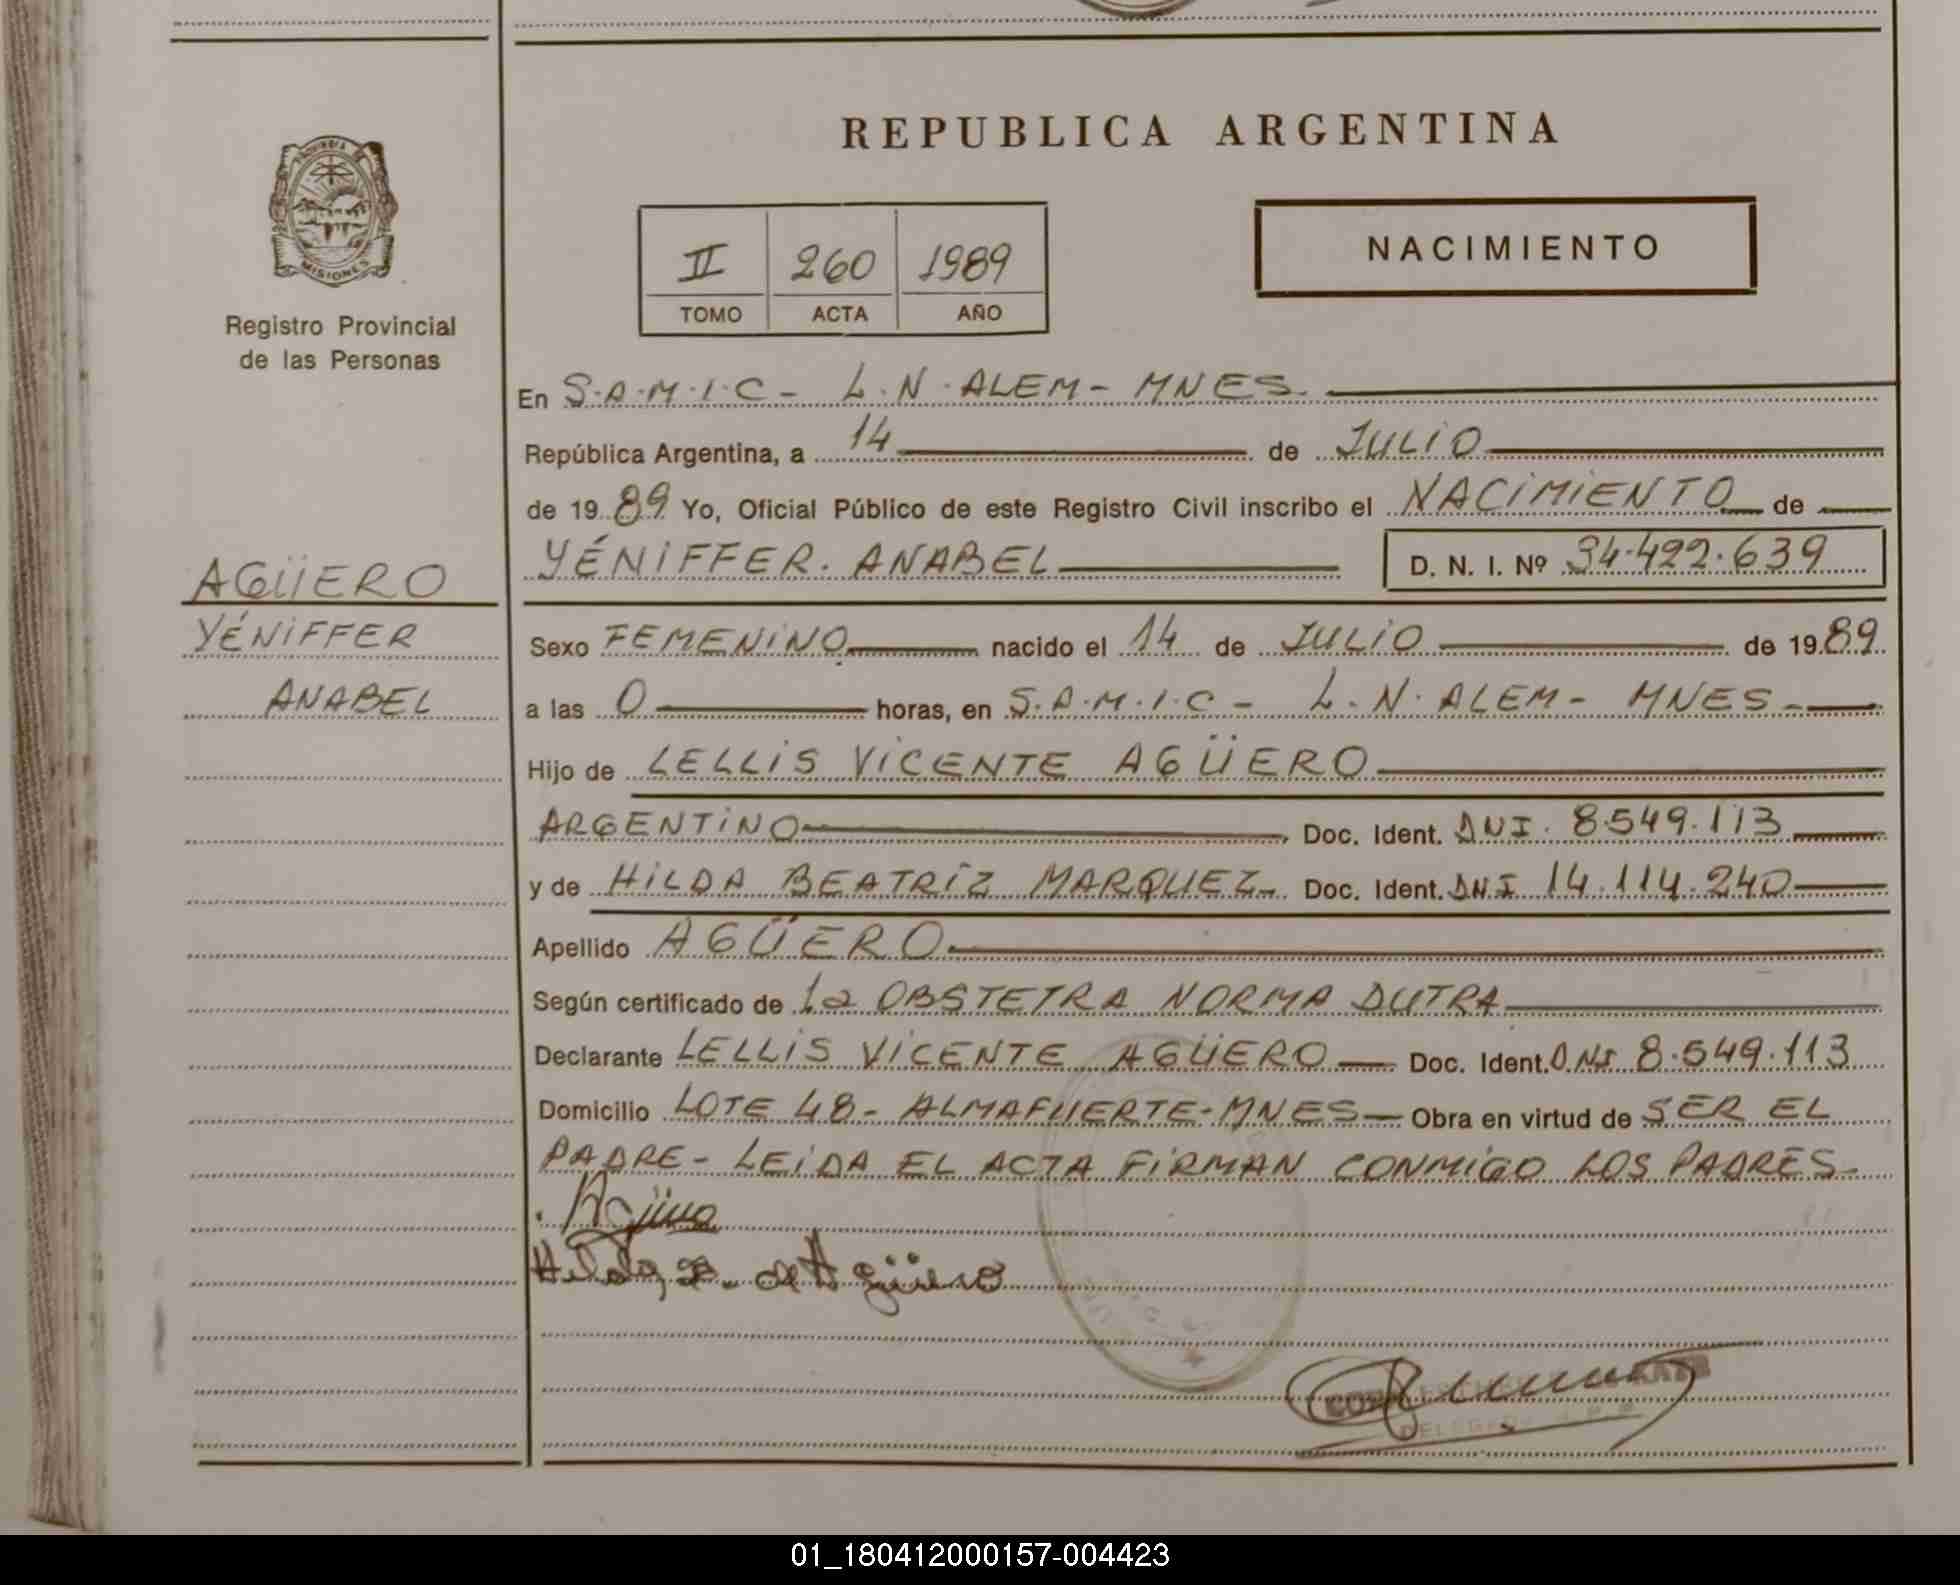 REPUBLICA ARGENTINA
PROVINCIA DE
MISIONES
Registro Provincial
de las Personas
II 260 1989
TOMO ACTA AÑO
NACIMIENTO
En S.A.M.I.C - L.N. ALEM - MNES.
República Argentina, a 14 de JULIO
de 1989 Yo, Oficial Público de este Registro Civil inscribo el NACIMIENTO de
YÉNIFFER. ANABEL D. N. I. Nº 34.492.639
AGÜERO
YÉNIFFER
ANABEL
Sexo FEMENINO nacido el 14 de JULIO de 1989
a las 0 horas, en S.A.M.I.C - L.N. ALEM - MNES -
Hijo de LELLIS VICENTE AGÜERO
ARGENTINO Doc. Ident. DNI. 8.549.113
y de HILDA BEATRÍZ MARQUEZ Doc. Ident. DNI 14.114.240
Apellido AGÜERO
Según certificado de La OBSTETRA NORMA DUTRA
Declarante LELLIS VICENTE AGÜERO Doc. Ident. DNI 8.549.113
Domicilio LOTE 48 - ALMAFUERTE - MNES Obra en virtud de SER EL
PADRE - LEIDA EL ACTA FIRMAN CONMIGO LOS PADRES -
Agüero
Hilda B. de Agüero
01_180412000157-004423